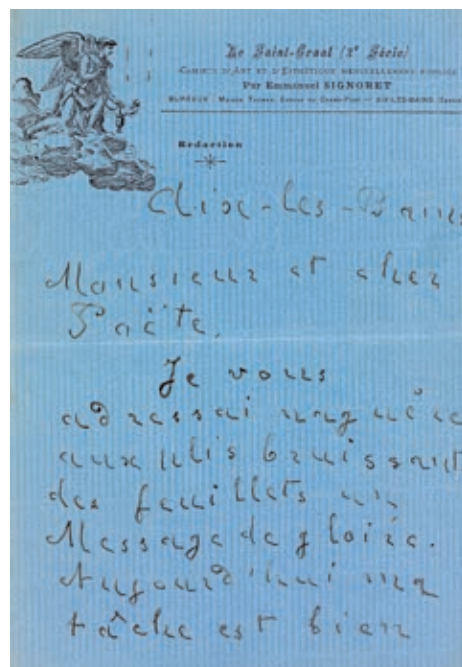 Le Saint-Graal (2e Série)
CAHIERS D'ART ET D'ESTHÉTIQUE MENSUELLEMENT PUBLIÉS
Par Emmanuel SIGNORET
BUREAUX : AIX-LES-BAINS
Rédaction
Aix-les-Bains
Monsieur et cher
Poëte,
Je vous
adressai naguère
aux plis bruissant
des feuillets un
Message de gloire.
Aujourd'hui ma
tâche est bien